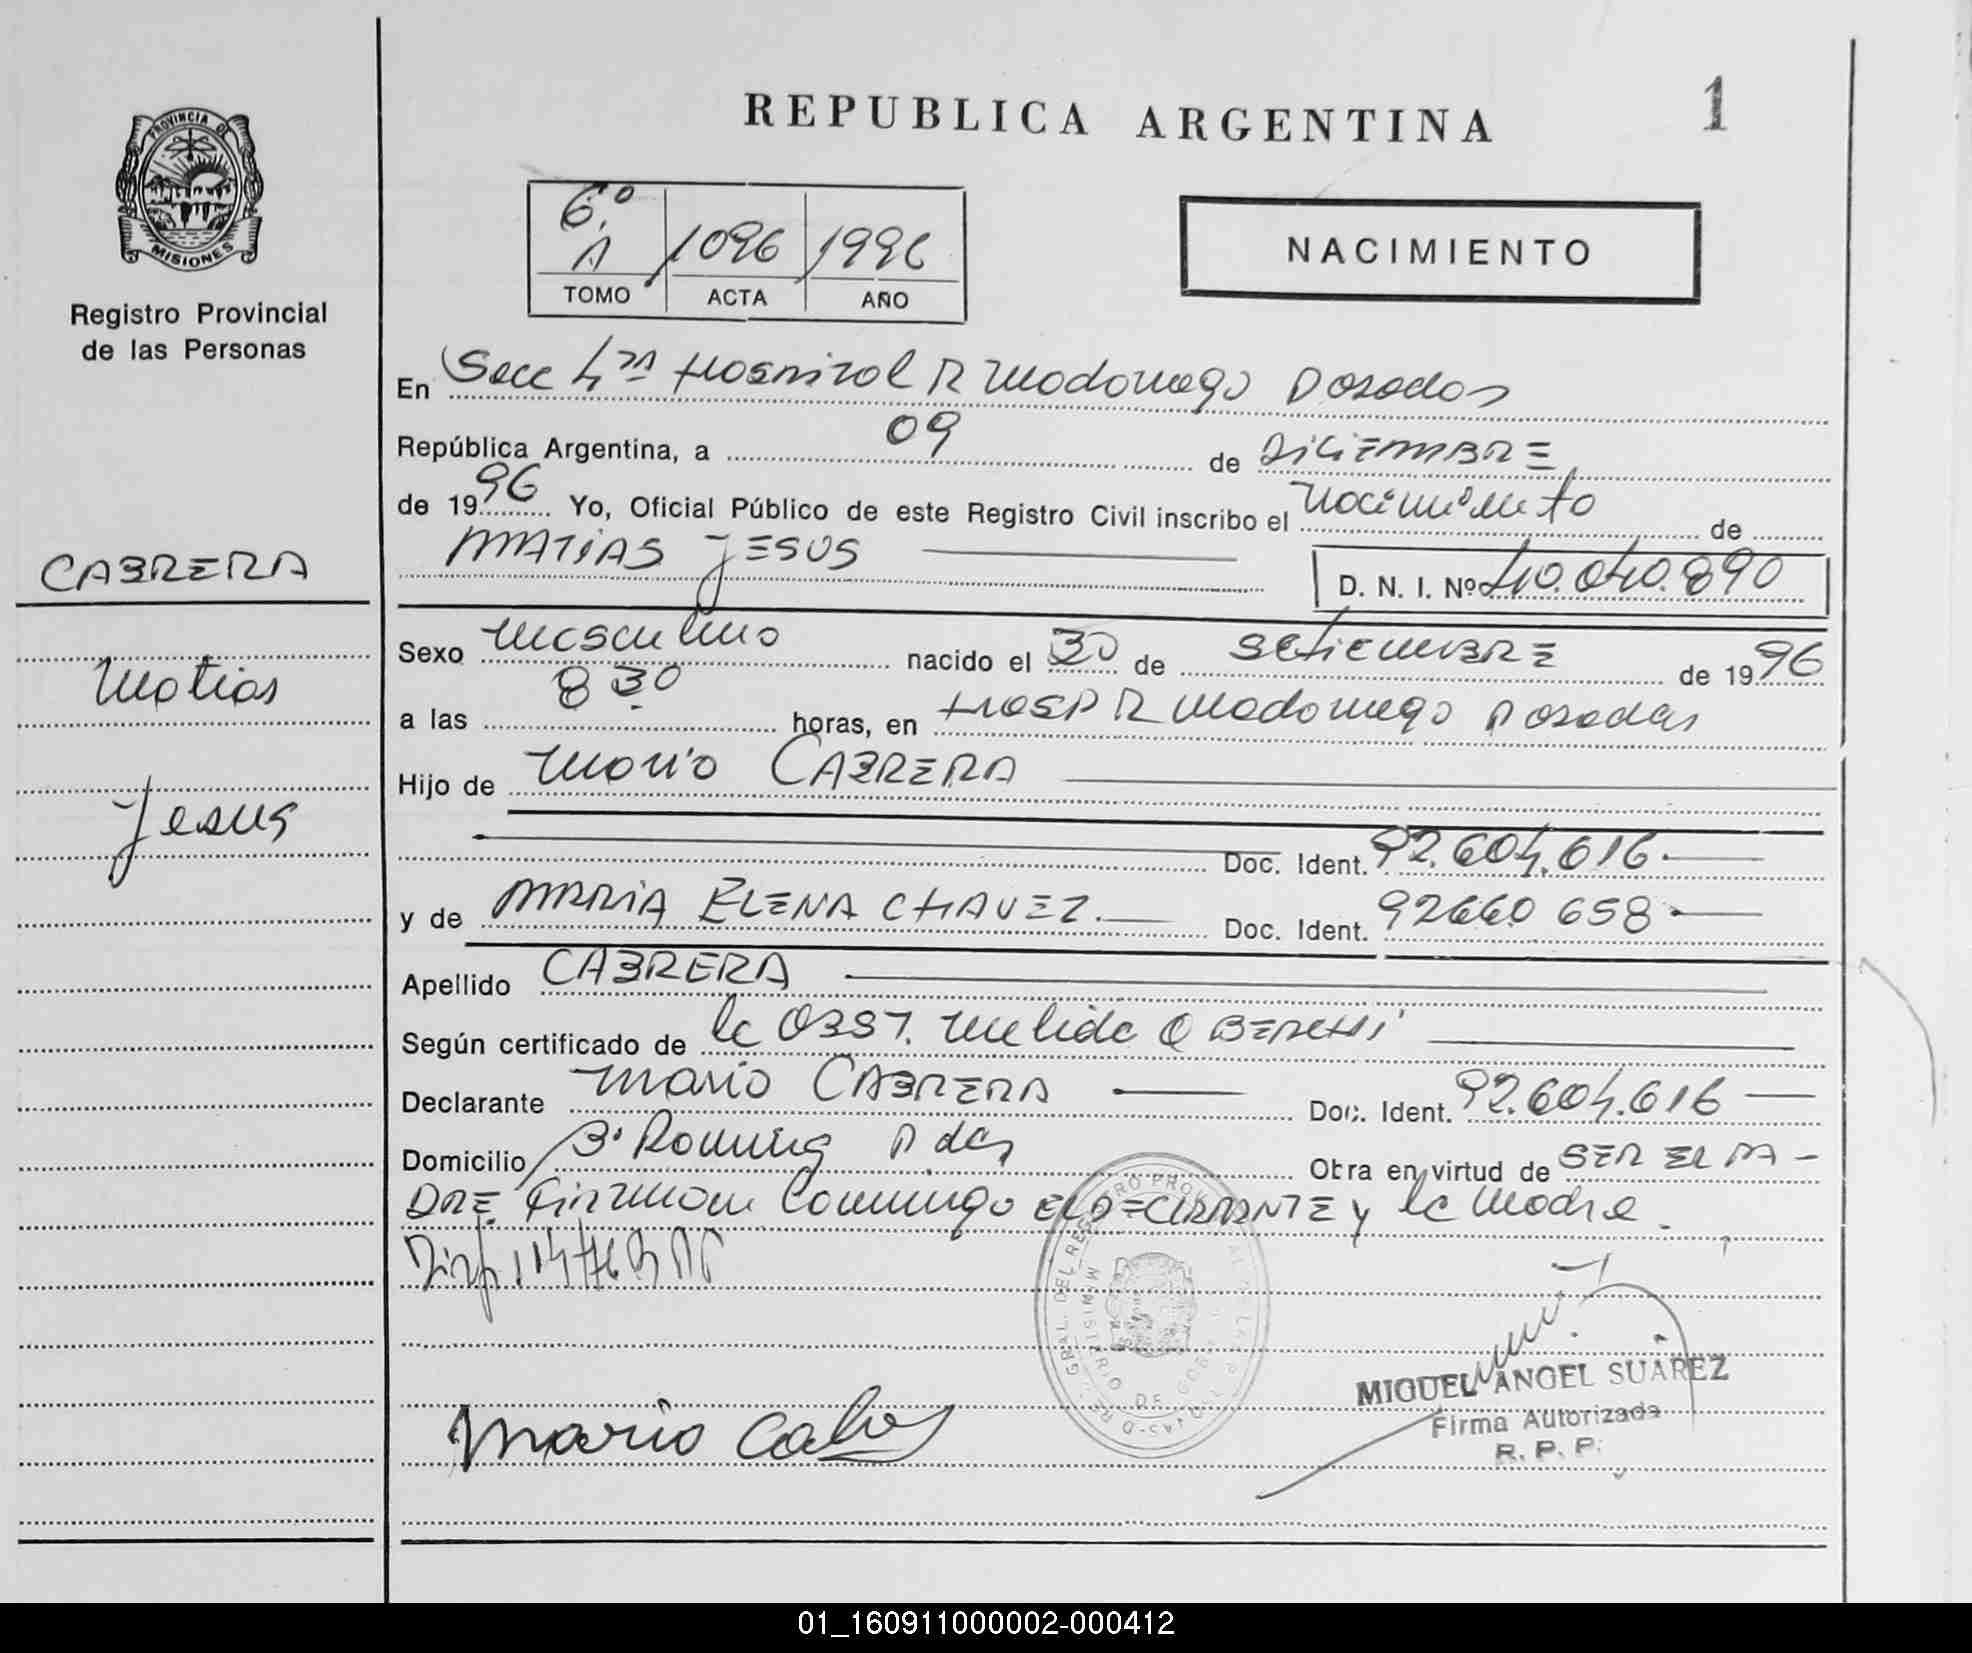 PROVINCIA DE
MISIONES
Registro Provincial
de las Personas
CABRERA
Matias
Jesus
REPUBLICA ARGENTINA
1
6º A 1096 1996
TOMO ACTA AÑO
NACIMIENTO
En Secc 4ta Hospital R Madariaga Posadas
República Argentina, a 09 de DICIEMBRE
de 1996 Yo, Oficial Público de este Registro Civil inscribo el nacimiento de
MATIAS JESUS D. N. I. Nº 40.040.890
Sexo masculino nacido el 30 de SETIEMBRE de 1996
a las 8 30 horas, en HOSP R Madariaga Posadas
Hijo de Mario CABRERA
Doc. Ident. 92.604.616.
y de MARIA ELENA CHAVEZ. Doc. Ident. 92660 658
Apellido CABRERA
Según certificado de la OBST. Melida
Declarante Mario CABRERA Doc. Ident. 92.604.616
Domicilio Pdas Obra en virtud de SER EL PA-
DRE. Firman EL DECLARANTE y la Madre.
Mario
MIGUEL ANGEL SUAREZ
Firma Autorizada
R. P. P.
01_160911000002-000412